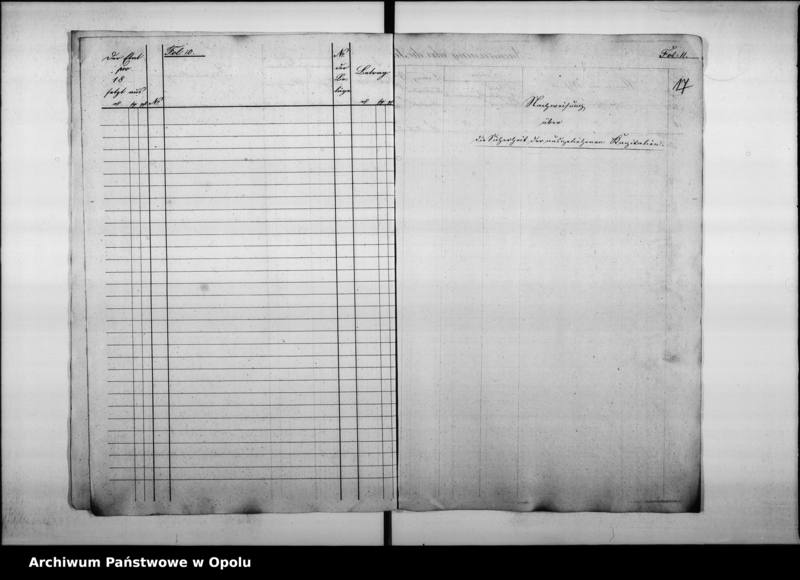 Der Etat
pro
18
setzt aus
Nº
Fol: 10.
Nº
der
Be-
läge
Betrag
Fol: 11.
17
Nachweisung
über
die Sicherheit der ausgeliehenen Kapitalien.
Archiwum Państwowe w Opolu